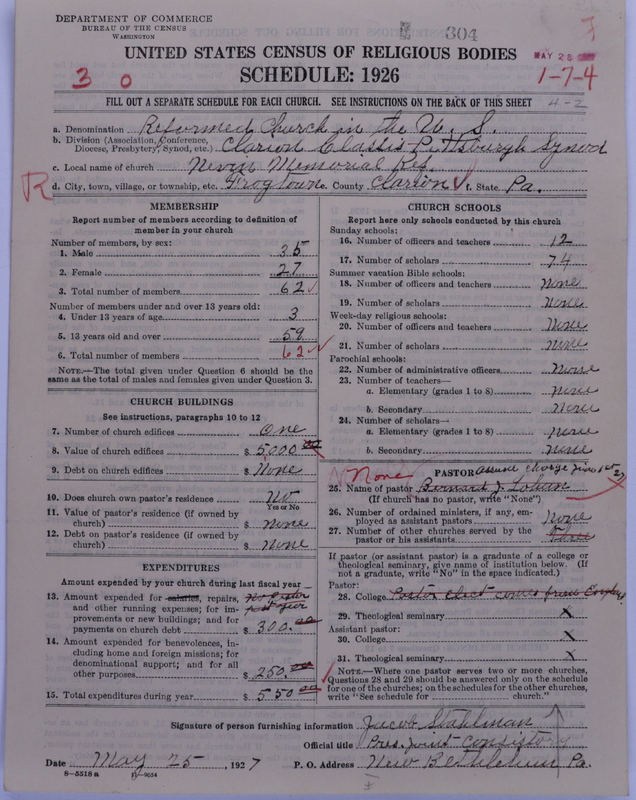 DEPARTMENT OF COMMERCE
BUREAU OF THE CENSUS
WASHINGTON
304
MAY 28
UNITED STATES CENSUS OF RELIGIOUS BODIES
3 0
SCHEDULE: 1926
1-7-4
FILL OUT A SEPARATE SCHEDULE FOR EACH CHURCH. SEE INSTRUCTIONS ON THE BACK OF THIS SHEET
4-2
a. Denomination Reformed Church in the U. S.
b. Division (Association, Conference, Diocese, Presbytery, Synod, etc.) Clarion Classis-Pittsburgh Synod
c. Local name of church Nevin Memorial Ref.
R d. City, town, village, or township, etc. Frogtown e. County Clarion f. State Pa.
MEMBERSHIP
Report number of members according to definition of
member in your church
Number of members, by sex:
1. Male 35
2. Female 27
3. Total number of members 62
Number of members under and over 13 years old:
4. Under 13 years of age 3
5. 13 years old and over 59
6. Total number of members 62
NOTE.—The total given under Question 6 should be
same as the total of males and females given under Question 3.
CHURCH BUILDINGS
See instructions, paragraphs 10 to 12
7. Number of church edifices One
8. Value of church edifices $ 5,000.00
9. Debt on church edifices $ None
10. Does church own pastor's residence No
Yes or No
11. Value of pastor's residence (if owned by
church) $ none
12. Debt on pastor's residence (if owned by
church) $ none
EXPENDITURES
Amount expended by your church during last fiscal year
13. Amount expended for salaries, repairs, No Pastor
and other running expenses; for im- past year
provements or new buildings; and for
payments on church debt $ 300.00
14. Amount expended for benevolences, in-
cluding home and foreign missions; for
denominational support; and for all
other purposes $ 250.00
15. Total expenditures during year $ 550.00
CHURCH SCHOOLS
Report here only schools conducted by this church
Sunday schools:
16. Number of officers and teachers 12
17. Number of scholars 74
Summer vacation Bible schools:
18. Number of officers and teachers None
19. Number of scholars None
Week-day religious schools:
20. Number of officers and teachers None
21. Number of scholars None
Parochial schools:
22. Number of administrative officers None
23. Number of teachers—
a. Elementary (grades 1 to 8) None
b. Secondary None
24. Number of scholars—
a. Elementary (grades 1 to 8) None
b. Secondary None
None PASTOR assume charge June 1st 27
25. Name of pastor Bernard J.
(If church has no pastor, write "None")
26. Number of ordained ministers, if any, em-
ployed as assistant pastors None
27. Number of other churches served by the
pastor or his assistants Three
If pastor (or assistant pastor) is a graduate of a college or
theological seminary, give name of institution below. (If
not a graduate, write "No" in the space indicated.)
Pastor:
28. College Pastor elect comes from
29. Theological seminary X
Assistant pastor:
30. College X
31. Theological seminary X
NOTE.—Where one pastor serves two or more churches,
Questions 28 and 29 should be answered only on the schedule
for one of the churches; on the schedules for the other churches,
write "See schedule for church."
Signature of person furnishing information Jacob Stahlman
Official title Pres. Joint Consistory
Date May 25, 1927 P. O. Address New Bethlehem Pa.
8-5518a